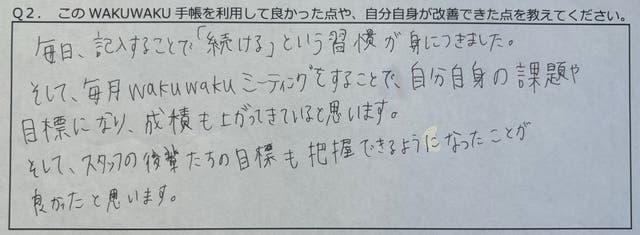 Q2. このWAKUWAKU手帳を利用して良かった点や、自分自身が改善できた点を教えてください。
毎日、記入することで「続ける」という習慣が身につきました。
そして、毎月wakuwakuミーティングをすることで、自分自身の課題や
目標になり、成積も上がってきていると思います。
そして、スタッフの後輩たちの目標も把握できるようになったことが
良かったと思います。